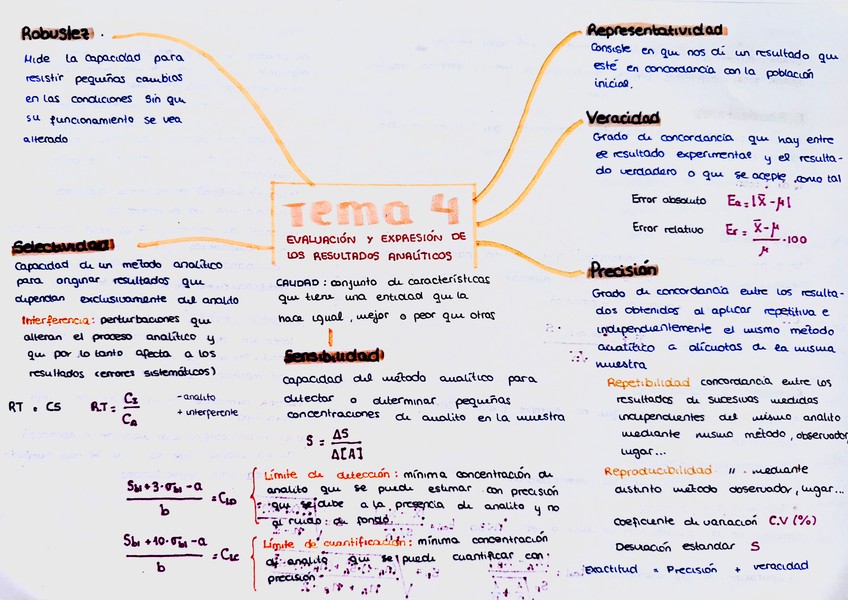 Robustez.
Mide la capacidad para
resistir pequeños cambios
en las condiciones sin que
su funcionamiento se vea
alterado
Representatividad
Consiste en que nos dé un resultado que
esté en concordancia con la población
inicial.
Veracidad
Grado de concordancia que hay entre
el resultado experimental y el resulta-
do verdadero o que se acepte como tal
Error absoluto Ea = |X̄ - μ|
Error relativo Er = (X̄ - μ)/μ · 100
Tema 4
EVALUACIÓN Y EXPRESIÓN DE
LOS RESULTADOS ANALÍTICOS
CALIDAD: conjunto de características
que tiene una entidad que la
hace igual, mejor o peor que otras
Selectividad
Capacidad de un método analítico
para originar resultados que
dependan exclusivamente del analito
Interferencia: perturbaciones que
alteran el proceso analítico y
que por lo tanto afecta a los
resultados (errores sistemáticos)
RT = CS RT = C_I/C_A
- analito
+ interferente
Sensibilidad
capacidad del método analítico para
detectar o determinar pequeñas
concentraciones de analito en la muestra
S = ΔS/Δ[A]
(Sbl + 3·σbl - a)/b = CLD
Límite de detección: mínima concentración de
analito que se puede estimar con precisión
que se debe a la presencia de analito y no
al ruido de fondo.
(Sbl + 10·σbl - a)/b = CLC
Límite de cuantificación: mínima concentración
de analito que se puede cuantificar con
precisión
Precisión
Grado de concordancia entre los resulta-
dos obtenidos al aplicar repetitiva e
independientemente el mismo método
analítico a alícuotas de la misma
muestra
Repetibilidad concordancia entre los
resultados de sucesivas medidas
independientes del mismo analito
mediante mismo método, observador
lugar...
Reproducibilidad " mediante
distinto método observador, lugar...
Coeficiente de variación C.V (%)
Desviación estandar S
Exactitud = Precisión + veracidad